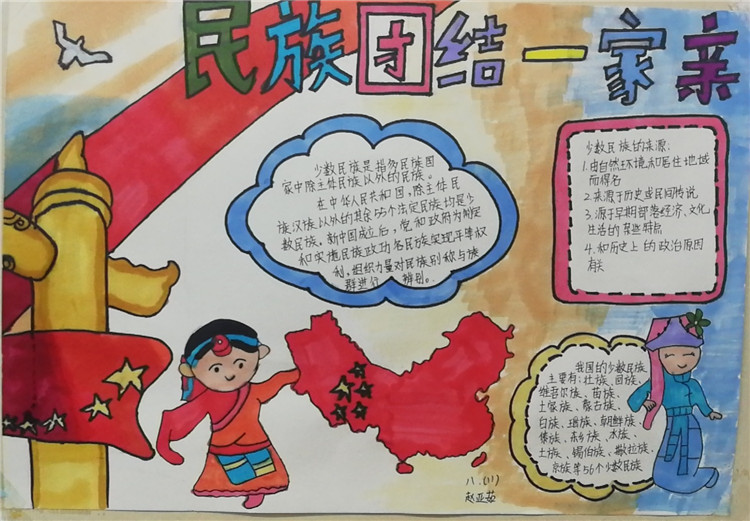 民族团结一家亲
少数民族是指多民族国
家中除主体民族以外的民族。
在中华人民共和国,除主体民
族汉族以外的其余55个法定民族均是少
数民族。新中国成立后,党和政府为制定
和实施民族政功各民族实现平等权
利,组织力量对民族别称与族
群进行 辨别。
少数民族的来源:
1.由自然环境和居住地域
而得名
2.来源于历史或民间传说
3.源于早期部落经济、文化
生活的某些特点
4.和历史上的政治原因
有关
我国的少数民族
主要有:壮族、回族、
维吾尔族、苗族、
土家族、蒙古族、
白族、瑶族、朝鲜族
傣族、东乡族、水族、
土族、锡伯族、撒拉族、
京族等56个少数民族
八.(11)
赵亚茹